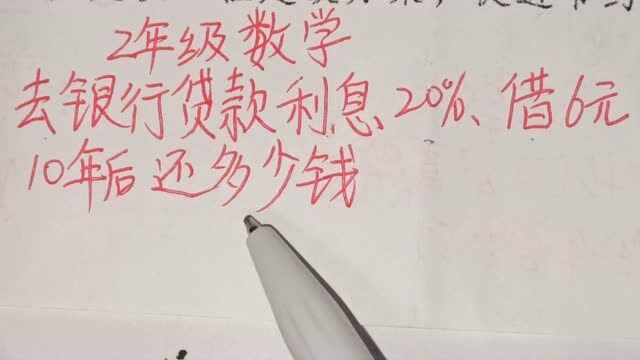 2年级数学
去银行贷款利息20%、借6元
10年后还多少钱